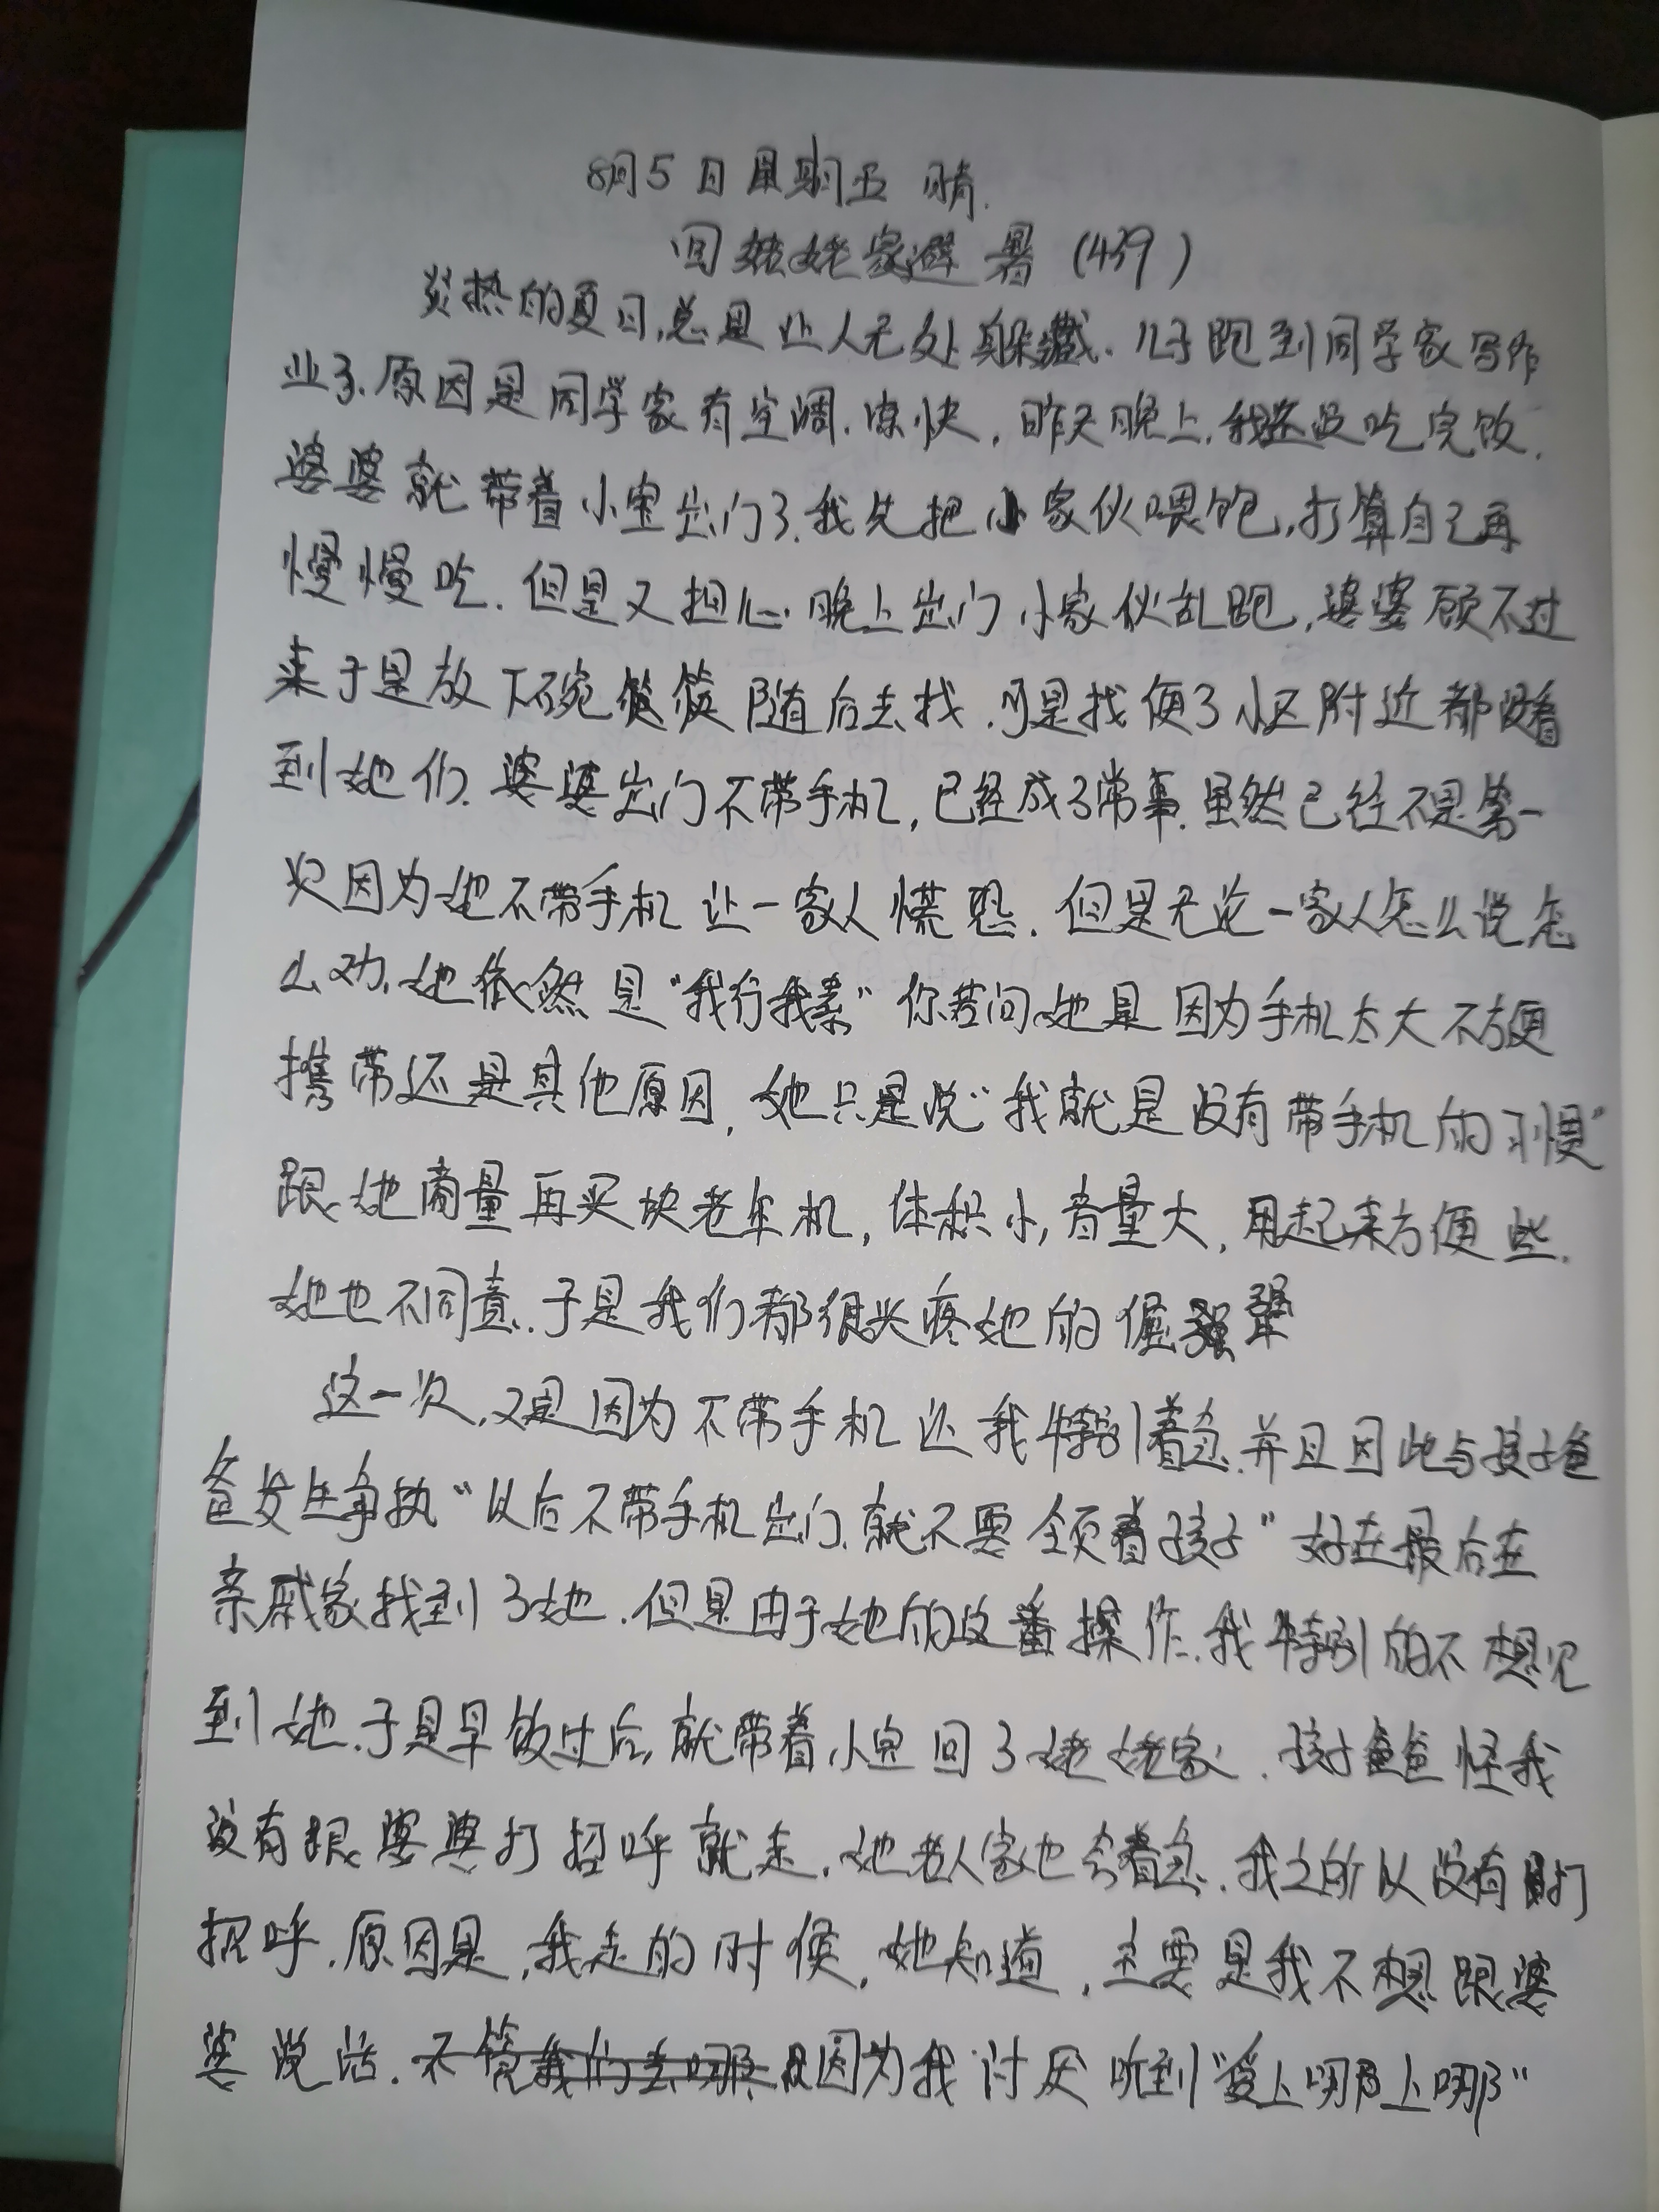 8月5日星期五 晴.
回姥姥家避暑(439)
炎热的夏日,总是让人无处躲藏.儿子跑到同学家写作
业了.原因是同学家有空调.凉快,昨天晚上,我还没吃完饭.
婆婆就带着小宝出门了.我先把小家伙喂饱,打算自己再
慢慢吃.但是又担心晚上出门小家伙乱跑,婆婆顾不过
来于是放下碗筷随后去找.可是找便了小区附近都没看
到她们.婆婆出门不带手机,已经成了常事.虽然已经不是第一
次因为她不带手机让一家人慌恐.但是无论一家人怎么说怎
么劝,她依然是"我行我素"你若问她是因为手机太大不方便
携带还是其他原因,她只是说"我就是没有带手机的习惯"
跟她商量再买块老年机,体积小,音量大,用起来方便些.
她也不同意.于是我们都很头疼她的倔强
这一次,又是因为不带手机让我特别着急.并且因此与孩子爸
爸发生争执"以后不带手机出门.就不要领着孩子"好在最后在
亲戚家找到了她.但是由于她的这番操作.我特别的不想见
到她.于是早饭过后,就带着小宝回了姥姥家.孩子爸爸怪我
没有跟婆婆打招呼就走.她老人家也会着急.我之所以没有打
招呼.原因是,我走的时候,她知道,主要是我不想跟婆
婆说话.不管我们去哪因为我讨厌听到"爱上哪上哪"